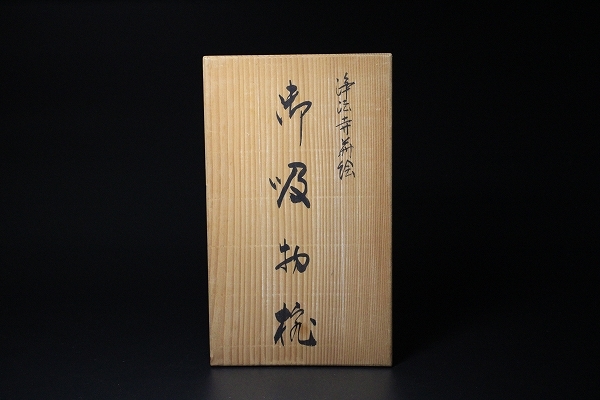 浄法寺蒔絵
御吸物椀